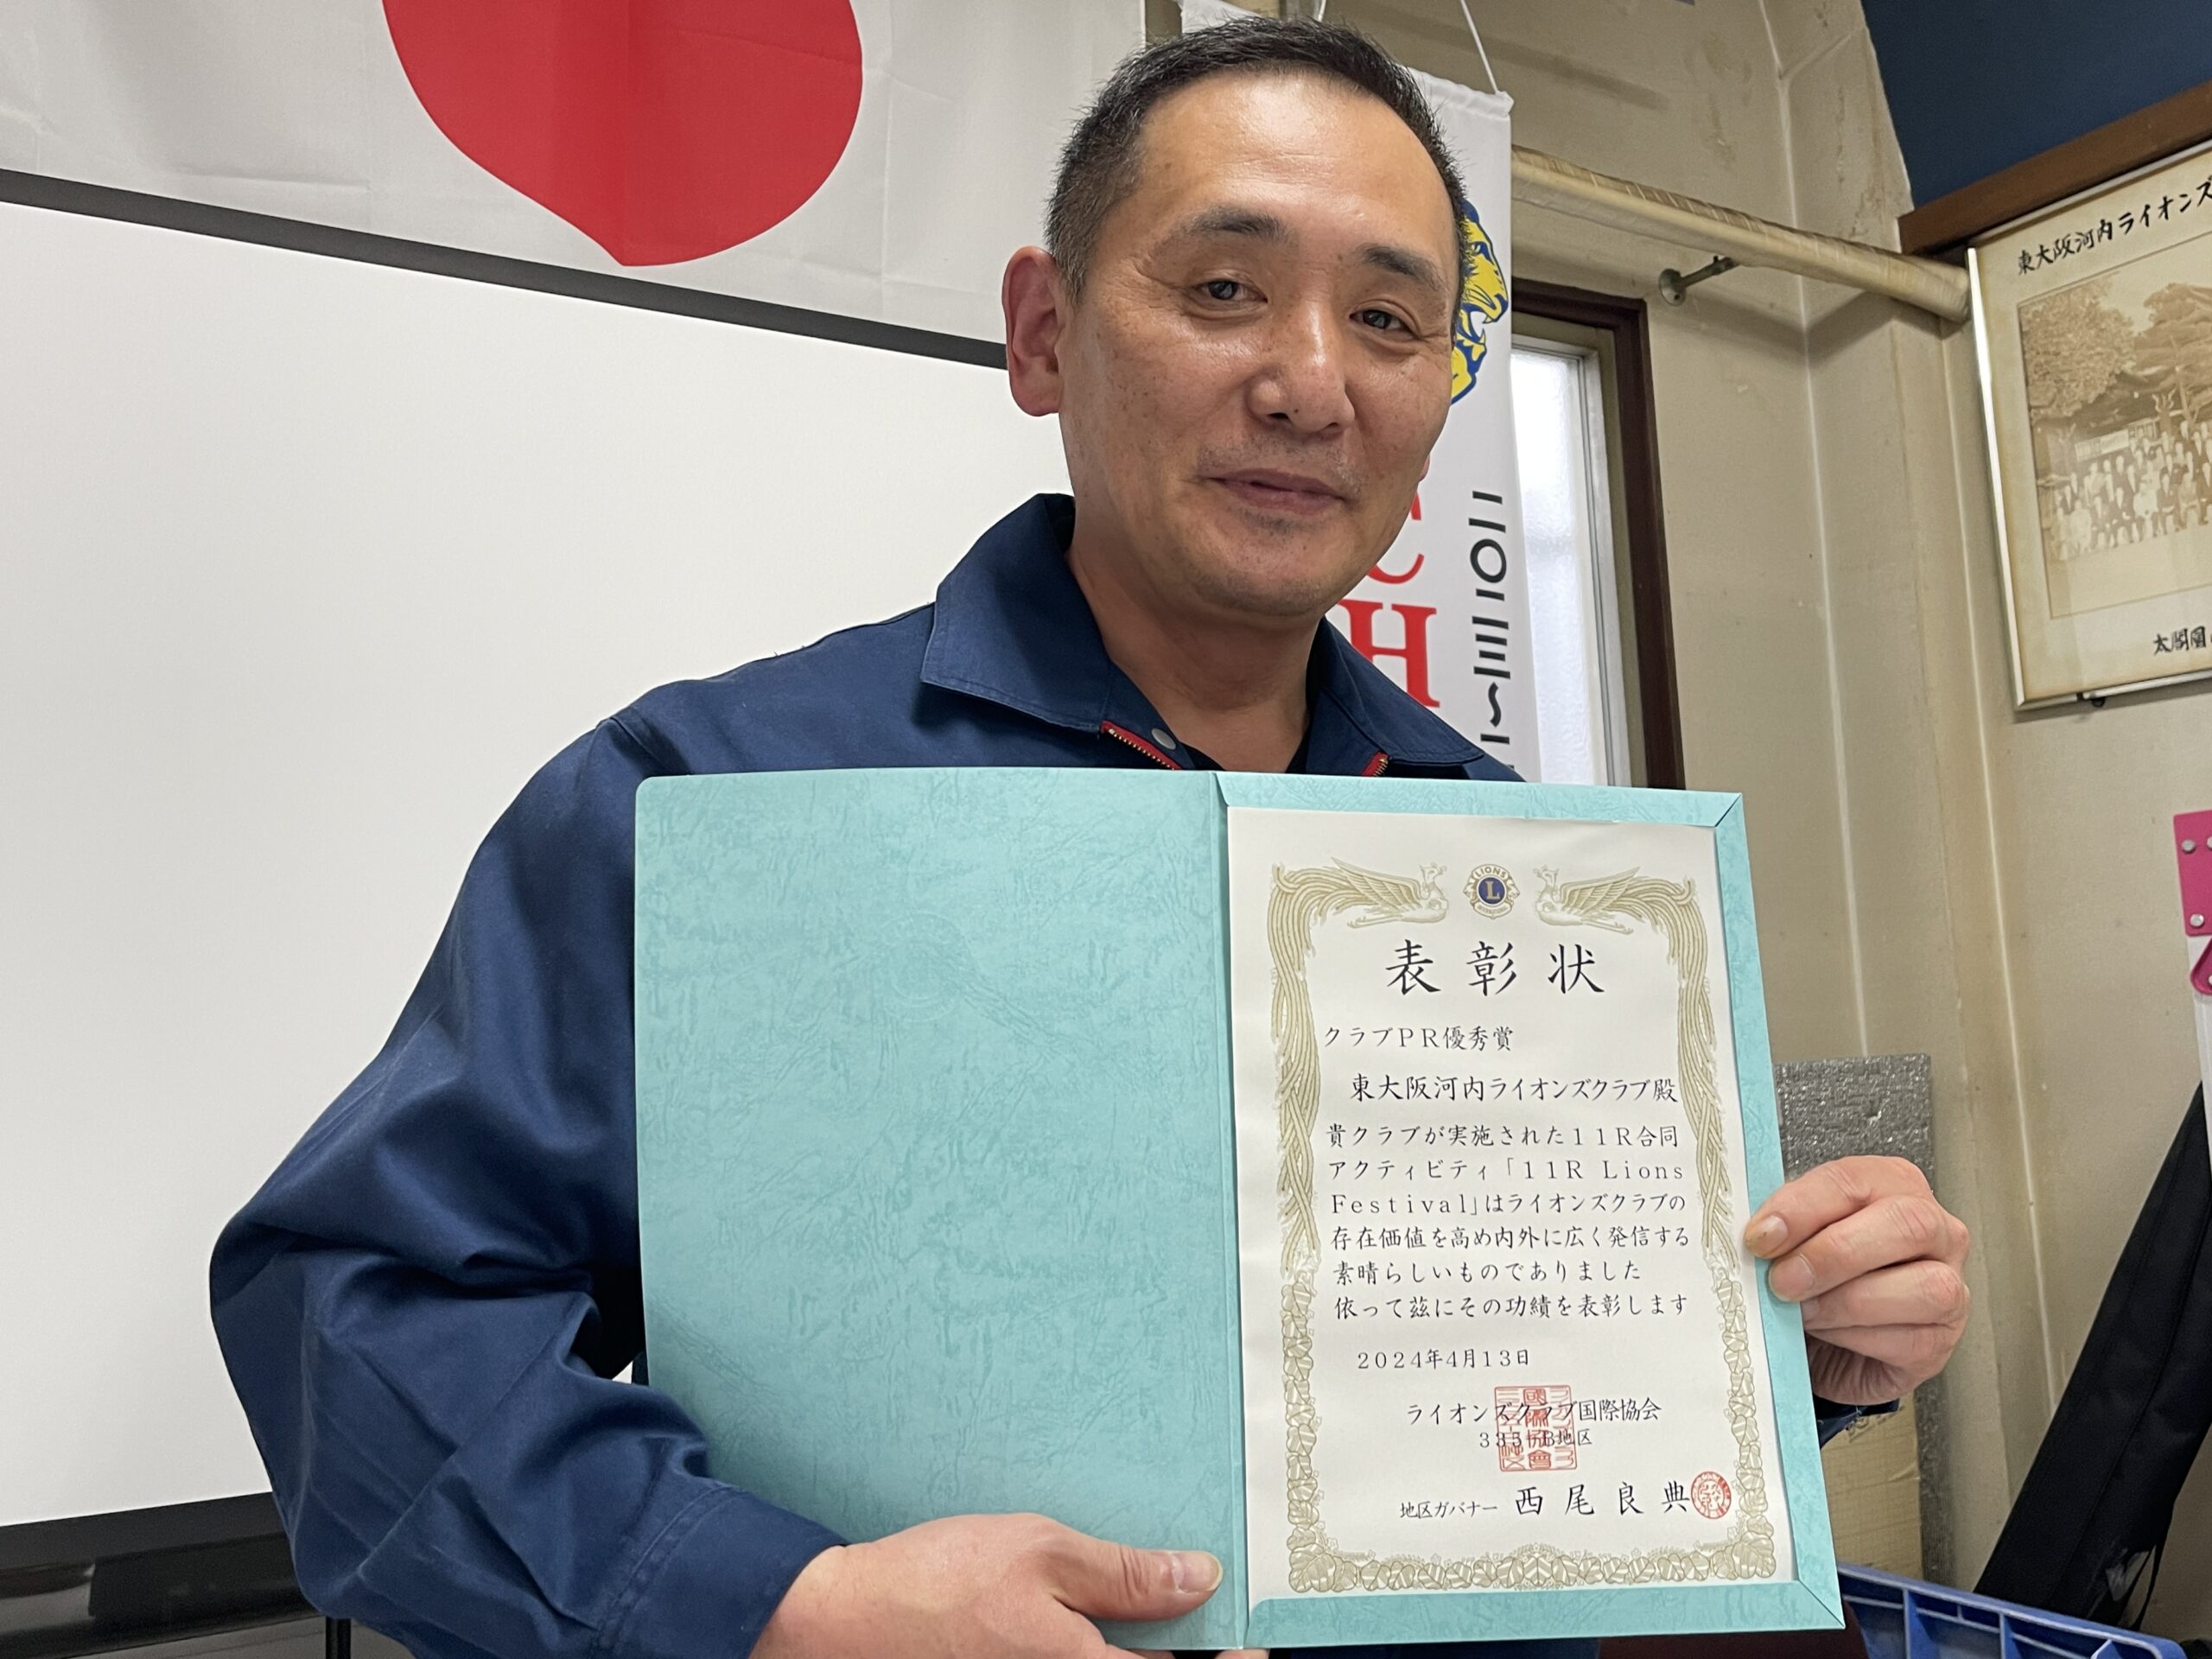 東大阪河内ライオンズ
太閤園
C
H
二〇二三〜二
LIONS
L
表彰状
クラブPR優秀賞
東大阪河内ライオンズクラブ殿
貴クラブが実施された11R合同
アクティビティ「11R Lions
Festival」はライオンズクラブの
存在価値を高め内外に広く発信する
素晴らしいものでありました
依って茲にその功績を表彰します
2024年4月13日
ライオンズクラブ国際協会
335-B地区
地区ガバナー 西尾良典